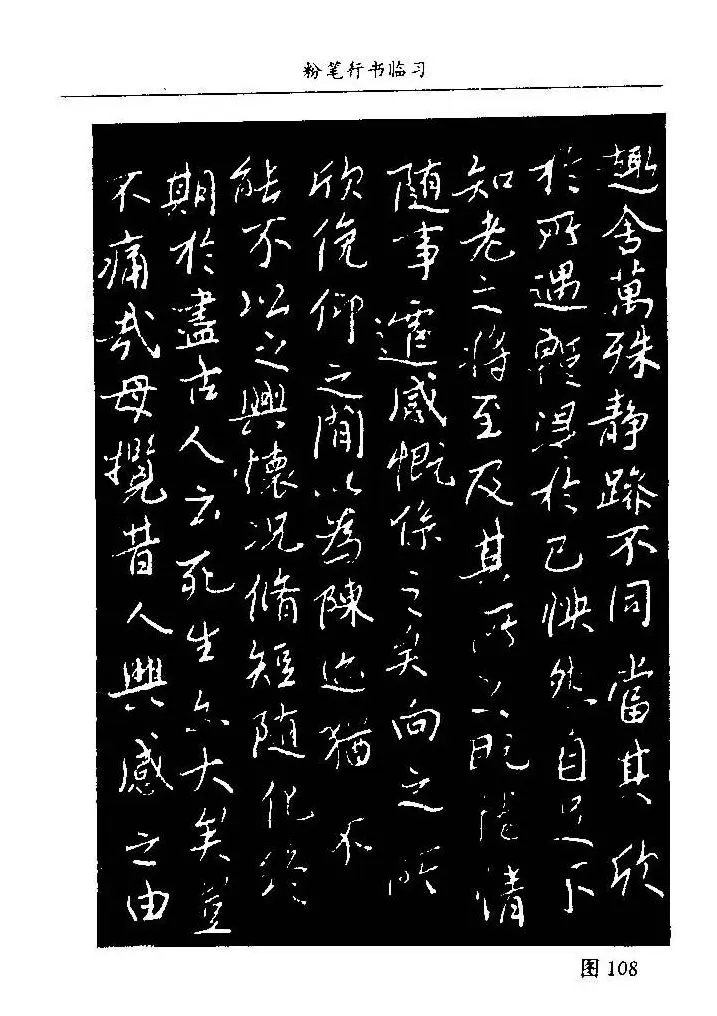 粉笔行书临习
趣舍萬殊静躁不同當其欣
於所遇暫得於己怏然自足不
知老之將至及其所之既倦情
随事遷感慨係之矣向之所
欣俛仰之閒以為陳迹猶不
能不以之興懷況脩短随化終
期於盡古人云死生亦大矣豈
不痛哉每攬昔人興感之由
图 108